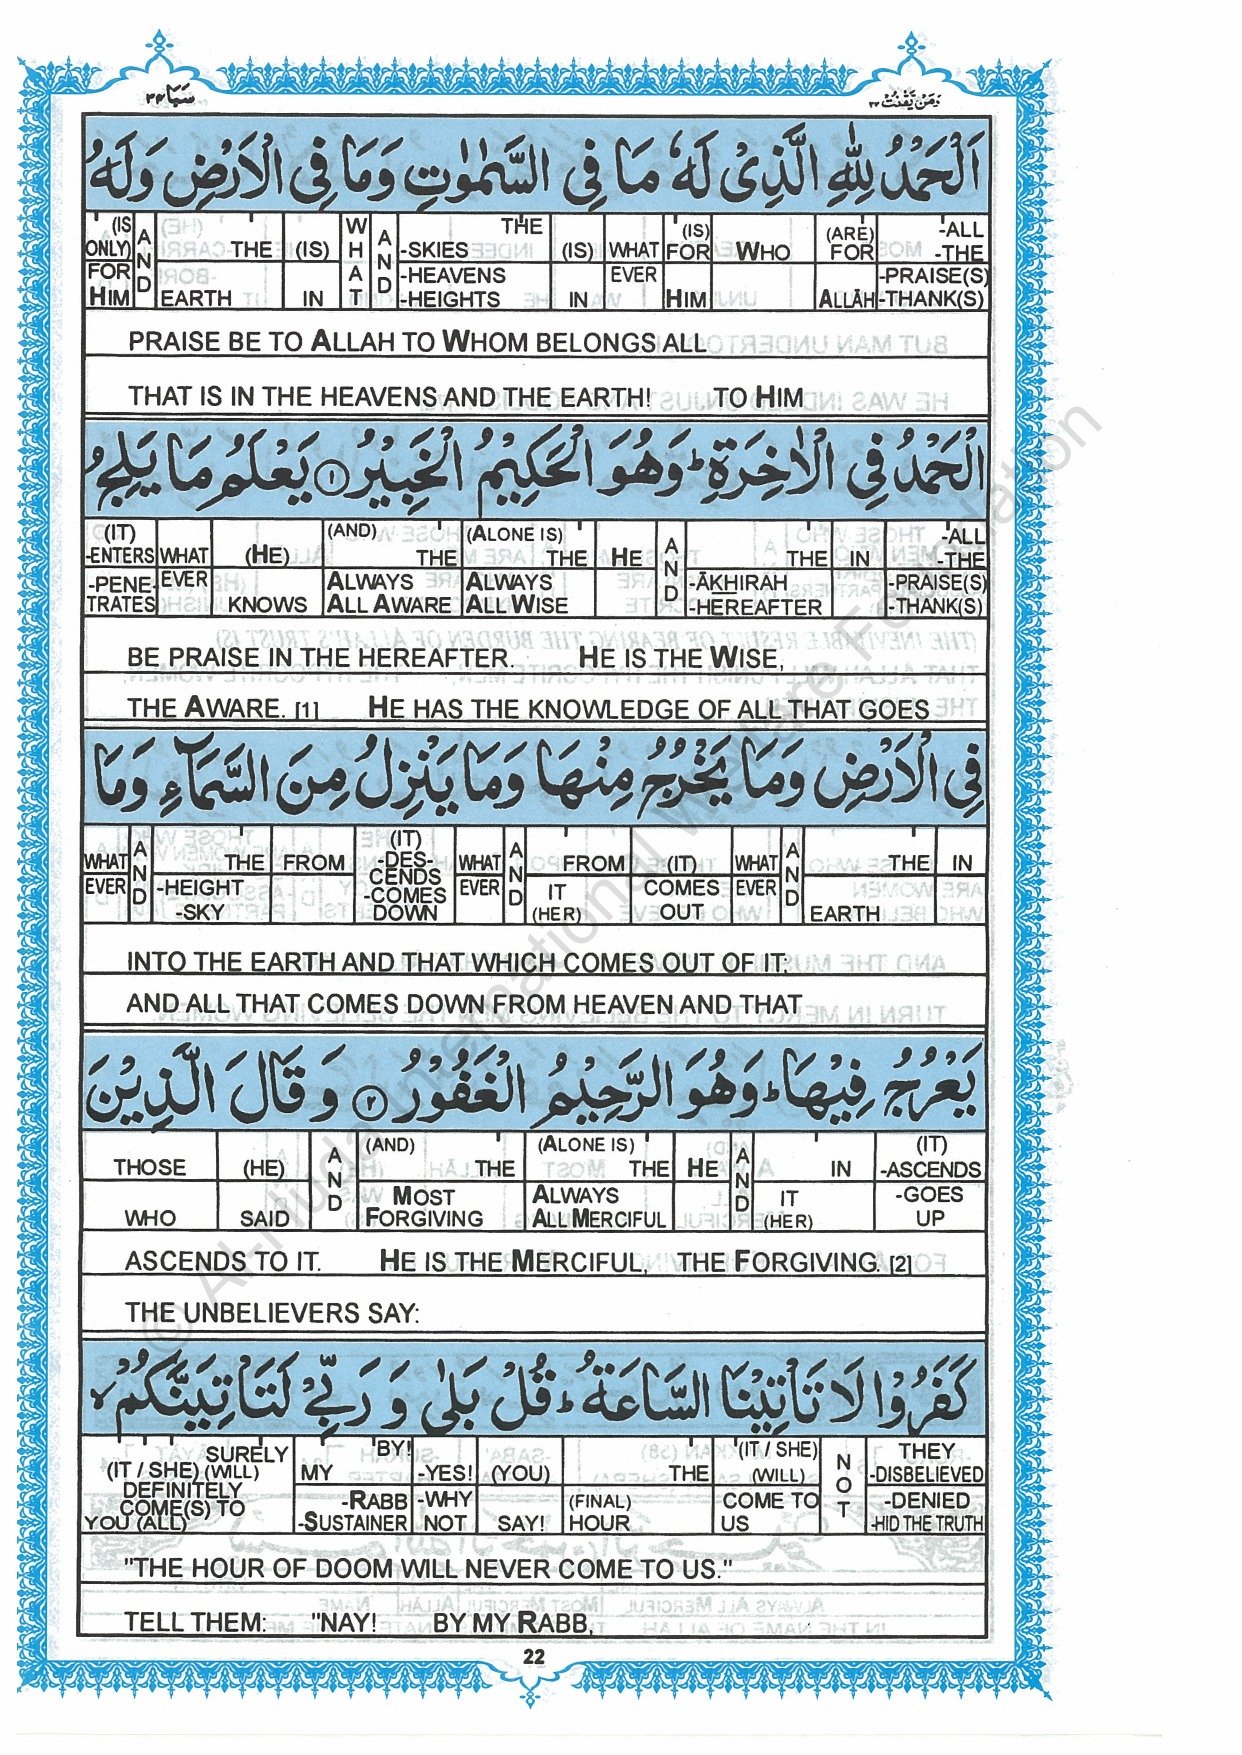 سَبَا ٣٤
وَمَنْ يَّقْنُتْ ٢٢
اَلْحَمْدُ لِلّٰهِ الَّذِىْ لَهٗ مَا فِى السَّمٰوٰتِ وَمَا فِى الْاَرْضِ وَلَهُ
(IS ONLY) FOR HIM
AND
THE EARTH
(IS) IN
WHAT
AND
THE -SKIES -HEAVENS -HEIGHTS
(IS) IN
WHAT EVER
(IS) FOR HIM
WHO
(ARE) FOR ALLĀH
-ALL -THE -PRAISE(S) -THANK(S)
PRAISE BE TO ALLAH TO WHOM BELONGS ALL
THAT IS IN THE HEAVENS AND THE EARTH! TO HIM
الْحَمْدُ فِى الْاٰخِرَةِ ؕ وَهُوَ الْحَكِيْمُ الْخَبِيْرُ ١ يَعْلَمُ مَا يَلِجُ
(IT) -ENTERS -PENE-TRATES
WHAT EVER
(HE) KNOWS
(AND) THE ALWAYS ALL AWARE
(ALONE IS) THE ALWAYS ALL WISE
HE
AND
THE -ĀKHIRAH -HEREAFTER
IN
-ALL -THE -PRAISE(S) -THANK(S)
BE PRAISE IN THE HEREAFTER. HE IS THE WISE,
THE AWARE. [1] HE HAS THE KNOWLEDGE OF ALL THAT GOES
فِى الْاَرْضِ وَمَا يَخْرُجُ مِنْهَا وَمَا يَنْزِلُ مِنَ السَّمَآءِ وَمَا
WHAT EVER
AND
THE -HEIGHT -SKY
FROM
(IT) -DES-CENDS -COMES DOWN
WHAT EVER
AND
FROM IT (HER)
(IT) COMES OUT
WHAT EVER
AND
THE EARTH
IN
INTO THE EARTH AND THAT WHICH COMES OUT OF IT:
AND ALL THAT COMES DOWN FROM HEAVEN AND THAT
يَعْرُجُ فِيْهَا ؕ وَهُوَ الرَّحِيْمُ الْغَفُوْرُ ٢ وَقَالَ الَّذِيْنَ
THOSE WHO
(HE) SAID
AND
(AND) THE MOST FORGIVING
(ALONE IS) THE ALWAYS ALL MERCIFUL
HE
AND
IN IT (HER)
(IT) -ASCENDS -GOES UP
ASCENDS TO IT. HE IS THE MERCIFUL, THE FORGIVING. [2]
THE UNBELIEVERS SAY:
كَفَرُوْا لَا تَاْتِيْنَا السَّاعَةُ ؕ قُلْ بَلٰى وَرَبِّىْ لَتَاْتِيَنَّكُمْ ۙ
SURELY (IT / SHE) (WILL) DEFINITELY COME(S) TO YOU (ALL)
BY! MY -RABB -SUSTAINER
-YES! -WHY NOT
(YOU) SAY!
THE (FINAL) HOUR
(IT / SHE) (WILL) COME TO US
NOT
THEY -DISBELIEVED -DENIED -HID THE TRUTH
"THE HOUR OF DOOM WILL NEVER COME TO US."
TELL THEM: "NAY! BY MY RABB,
22
© Al-Huda International Welfare Foundation